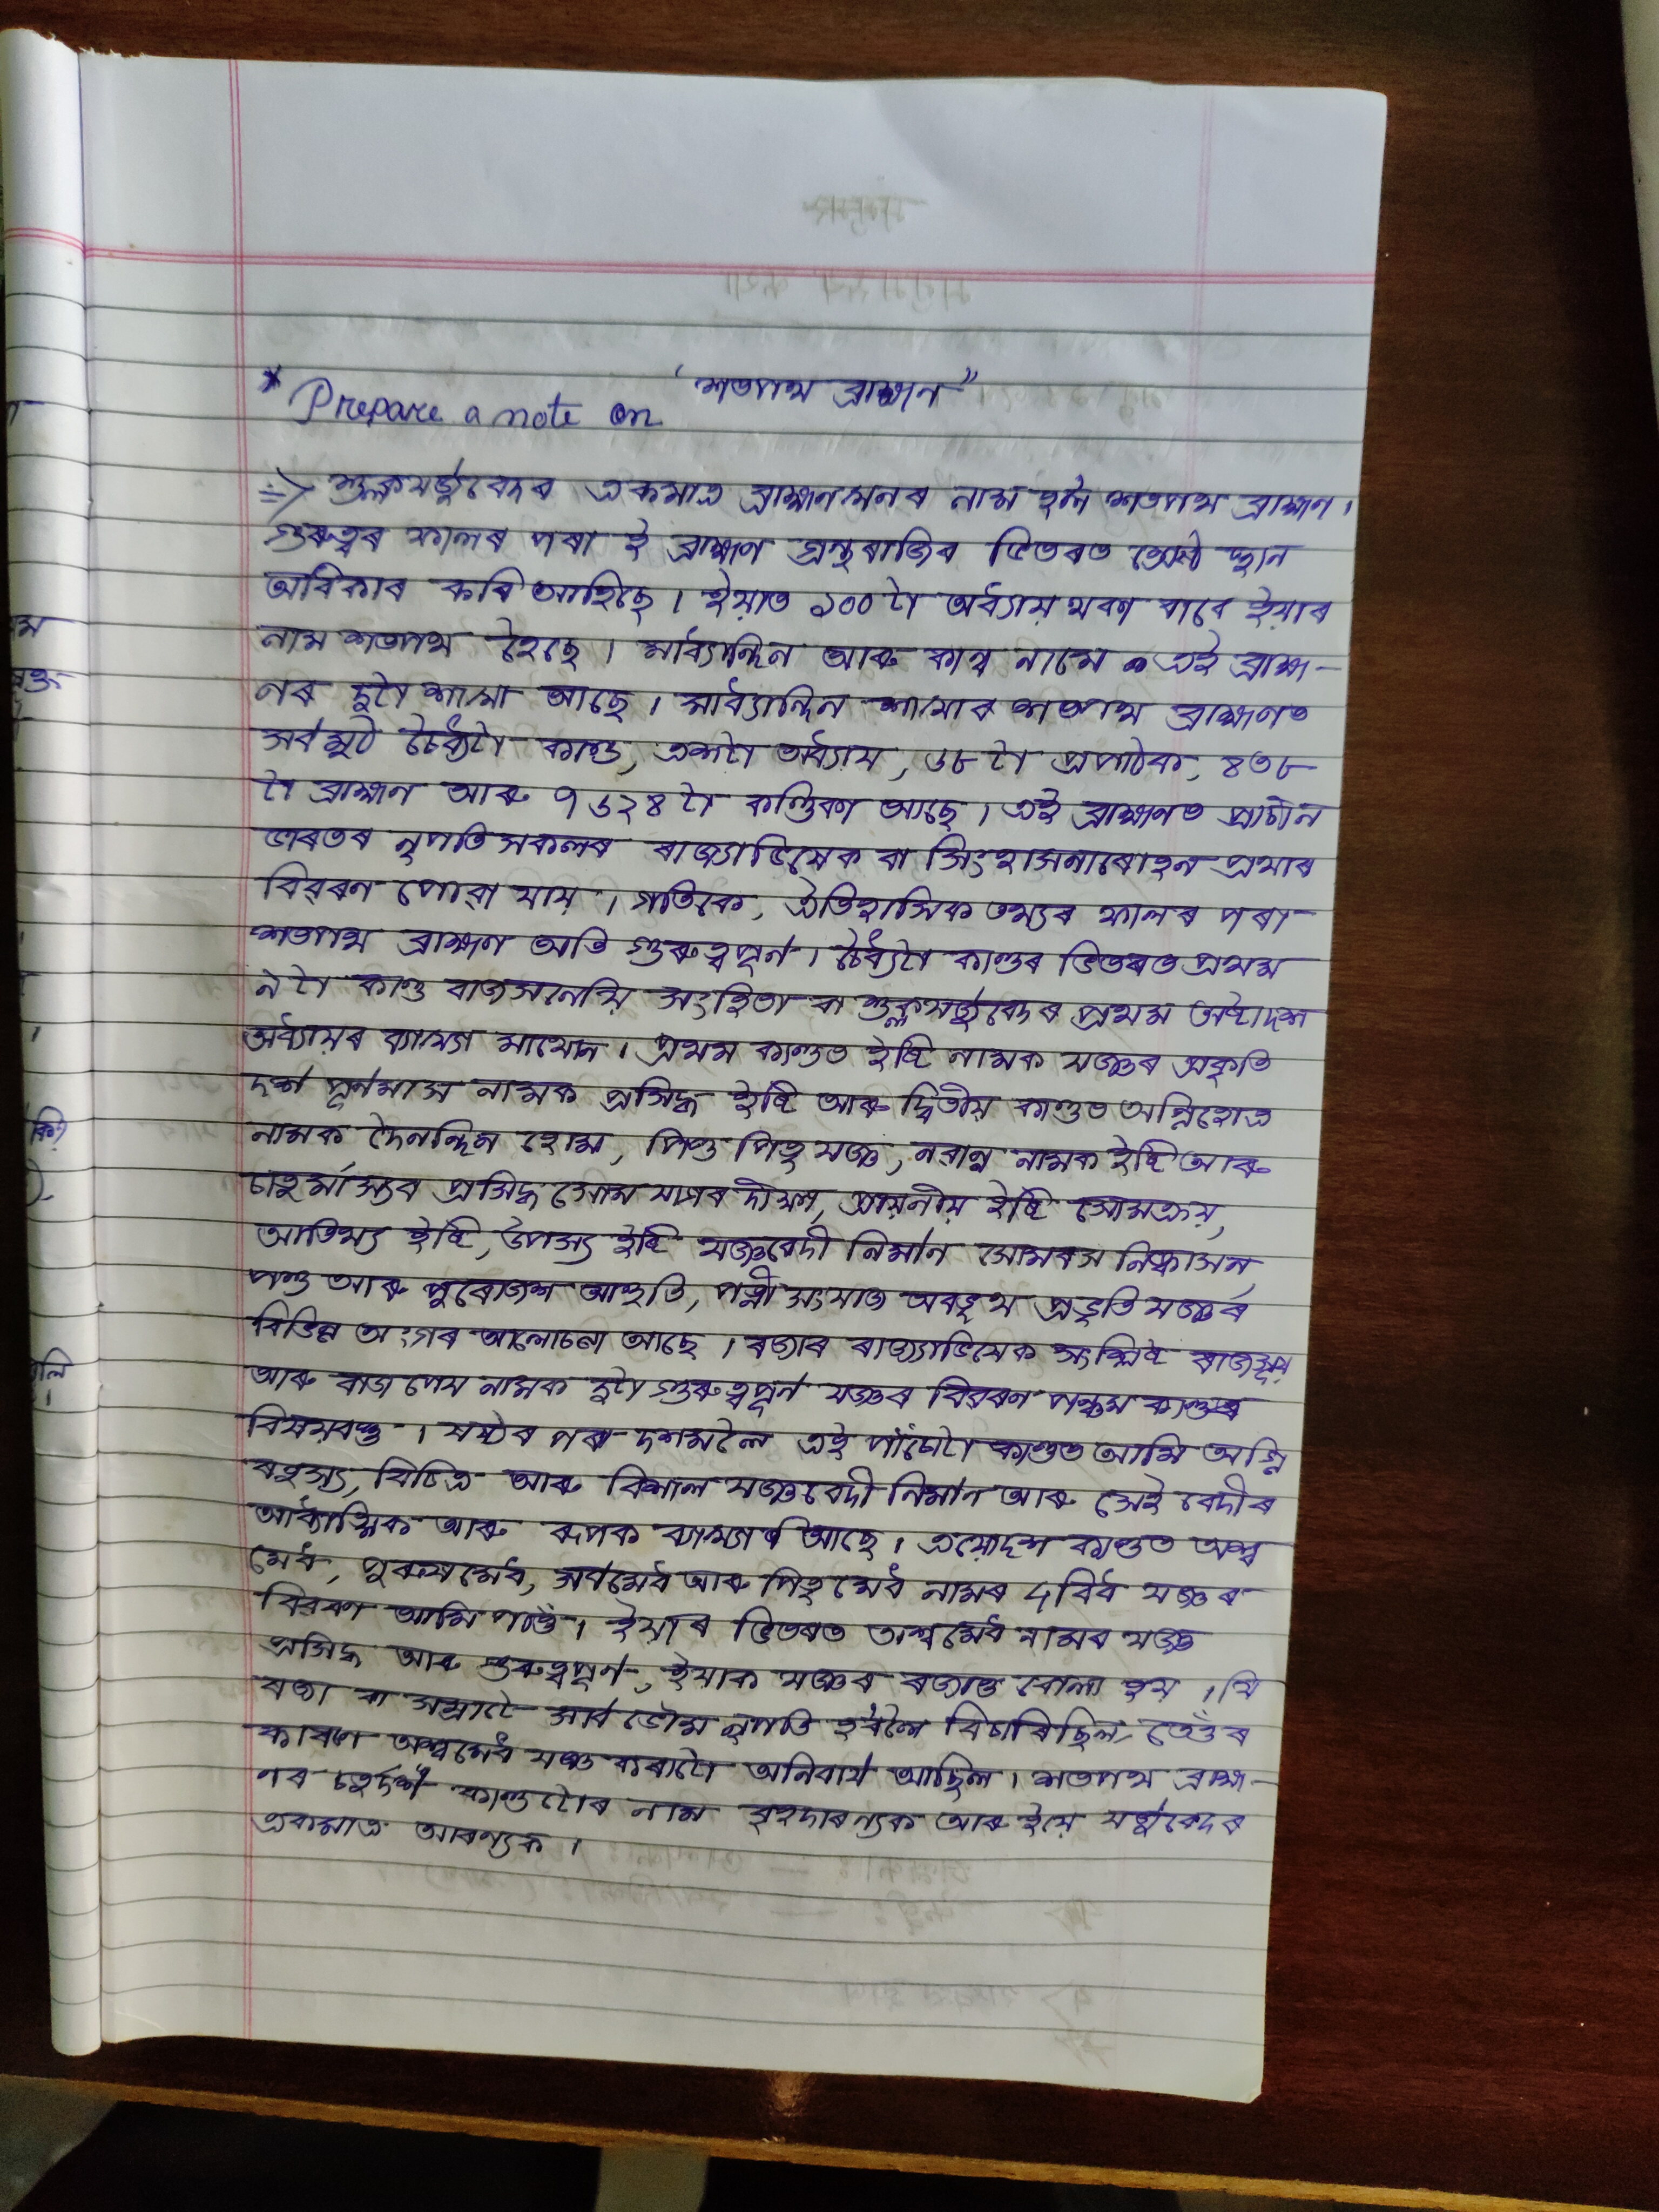 * Prepare a note on 'শতপথ ব্রাহ্মন"।
=> শুক্লযর্জুবেদৰ একমাত্ৰ ব্রাহ্মনখনৰ নাম হ'ল শতপথ ব্রাহ্মণ।
গুৰুত্বৰ ফালৰ পৰা ই ব্রাহ্মণ গ্রন্থৰাজিৰ ভিতৰত শ্রেষ্ঠ স্থান
অধিকাৰ কৰি আহিছে। ইয়াত ১০০ টা অৰ্ধ্যায় থকা বাবে ইয়াৰ
নাম শতপথ হৈছে। মাধ্যান্দিন আৰু কান্ব নামে এই ব্রাহ্ম-
ণৰ দুটা শাখা আছে। মাধ্যান্দিন শাখাৰ শতপথ ব্রাহ্মণত
সৰ্বমুঠ চৈধ্যটা কাণ্ড, এশটা অৰ্ধ্যায়, ৬৮ টা প্রপাঠক, ৪৩৮
টা ব্রাহ্মন আৰু ৭৬২৪ টা কণ্ডিকা আছে। এই ব্রাহ্মণত প্রাচীন
ভাৰতৰ নৃপতি সকলৰ ৰাজ্যাভিষেক বা সিংহাসনাৰোহন প্রথাৰ
বিৱৰন পোৱা যায়। গতিকে, ঐতিহাসিক তথ্যৰ ফালৰ পৰা
শতপথ ব্রাহ্মণ অতি গুৰুত্বপূৰ্ন। চৈধ্যটা কাণ্ডৰ ভিতৰত প্রথম
ন টা কাণ্ড বাজসনেয়ি সংহিতা বা শুক্লযৰ্জুবেদৰ প্রথম অষ্টাদশ
অৰ্ধ্যায়ৰ ব্যাখ্যা মাথোন। প্রথম কাণ্ডত ইষ্টি নামক যজ্ঞৰ প্রকৃতি
দৰ্শ পূৰ্ণমাস নামক প্রসিদ্ধ ইষ্টি আৰু দ্বিতীয় কাণ্ডত অগ্নিহোত্ৰ
নামক দৈনন্দিন হোম, পিণ্ড পিতৃ যজ্ঞ, নবান্ন নামক ইষ্টি আৰু
চাতুৰ্মাস্যৰ প্রসিদ্ধ সোম যাগৰ দীক্ষা, প্রায়নীয় ইষ্টি সোমক্রয়,
আতিথ্য ইষ্টি, ইষ্টি যজ্ঞবেদী নিৰ্মান সোমৰস নিষ্কাসন,
পশু আৰু পুৰোডাশ আহুতি, পত্নী সংযাজ অবভৃথ প্রভৃতি যজ্ঞৰ
বিভিন্ন অংগৰ আলোচনা আছে। ৰজাৰ ৰাজ্যাভিষেক সংশ্লিষ্ট ৰাজসূয়
আৰু বাজপেয় নামক দুটা গুৰুত্বপূৰ্ন যজ্ঞৰ বিৱৰন পঞ্চম কাণ্ডৰ
বিষয়বস্তু। ষষ্ঠৰ পৰা দশমলৈ এই পাঁচোটা কাণ্ডত আমি অগ্নি
ৰহস্য, বিচিত্ৰ আৰু বিশাল যজ্ঞবেদী নিৰ্মান আৰু সেই বেদীৰ
আৰ্ধ্যাত্মিক আৰু ৰূপক ব্যাখ্যা আছে। ত্রয়োদশ কাণ্ডত অশ্ব
মেধ, পুৰুষমেধ, সৰ্বমেধ আৰু পিতৃমেধ নামৰ বিধ যজ্ঞৰ
বিৱৰণ আমি পাওঁ। ইয়াৰ ভিতৰত অশ্বমেধ নামৰ যজ্ঞ
প্রসিদ্ধ আৰু গুৰুত্বপূৰ্ন, ইয়াক যজ্ঞৰ ৰজাও বোলা হয়। যি
ৰজা বা সম্রাটে সাৰ্বভৌম নৃপতি হ'বলৈ বিচাৰিছিল তেওঁৰ
কাৰণে অশ্বমেধ যজ্ঞ কৰাটো অনিবাৰ্য আছিল। শতপথ ব্রাহ্ম-
ণৰ চতুৰ্দশ কাণ্ডটোৰ নাম বৃহদাৰন্যক আৰু ইয়ে যৰ্জুবেদৰ
একমাত্ৰ আৰন্যক।